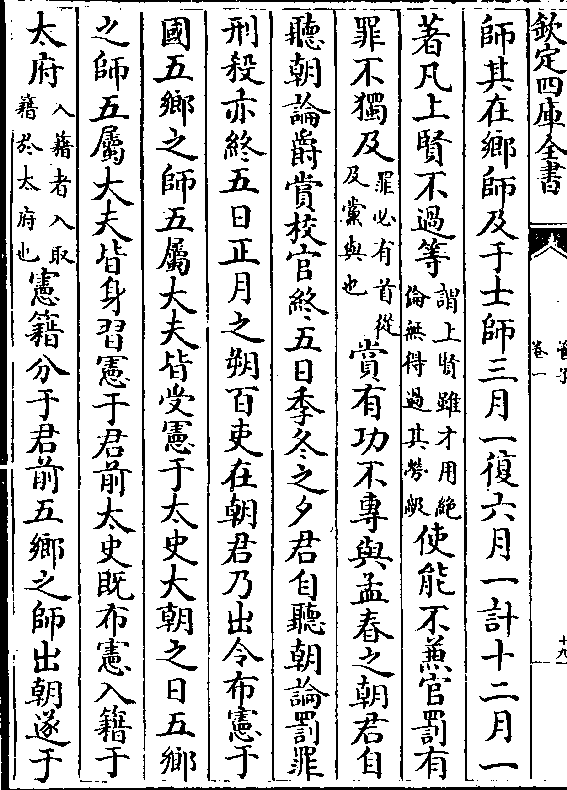 欽定四庫全書
管子
卷一
十九
師其在鄉師及于士師三月一復六月一計十二月一
著凡上賢不過等謂上賢雖才用絶倫無得過其勞級使能不兼官罰有
罪不獨及罪必有首從及黨與也賞有功不專與孟春之朝君自
聽朝論爵賞校官終五日季冬之夕君自聽朝論罰罪
刑殺亦終五日正月之朔百吏在朝君乃出令布憲于
國五鄉之師五屬大夫皆受憲于太史大朝之日五鄉
之師五屬大夫皆身習憲于君前太史既布憲入籍于
太府入籍者入取籍於太府也憲籍分于君前五鄉之師出朝遂于